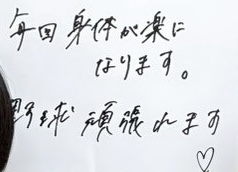 毎回 身体が楽に
なります。
野球 頑張れます
♡